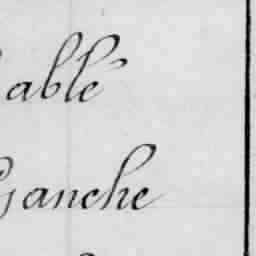 able
Ganche